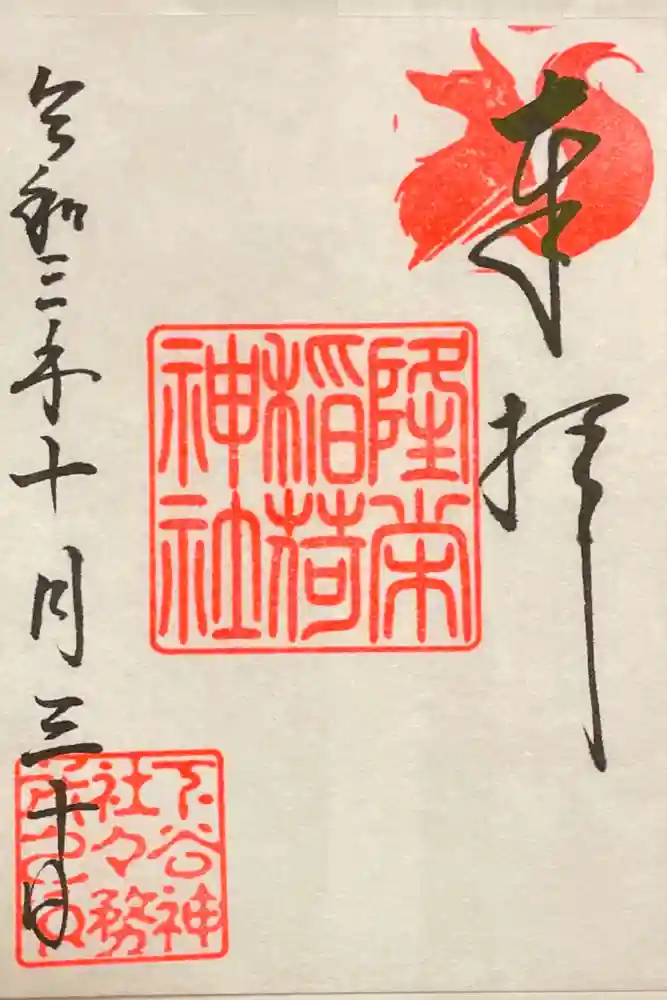 奉拝
隆栄
稲荷
神社
令和三年十月三十日
下谷神
社々務
所